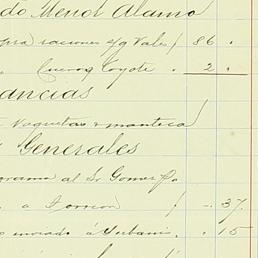 do Menol Alamo
pra raciones s/g Vales / 86 .
" Cueros Coyote . 2 .
ancias
Vaquetas & manteca
Generales
grama al Sr Gomez P.
" a Torreon / -. 37.
enviado á Urbano . - . 15